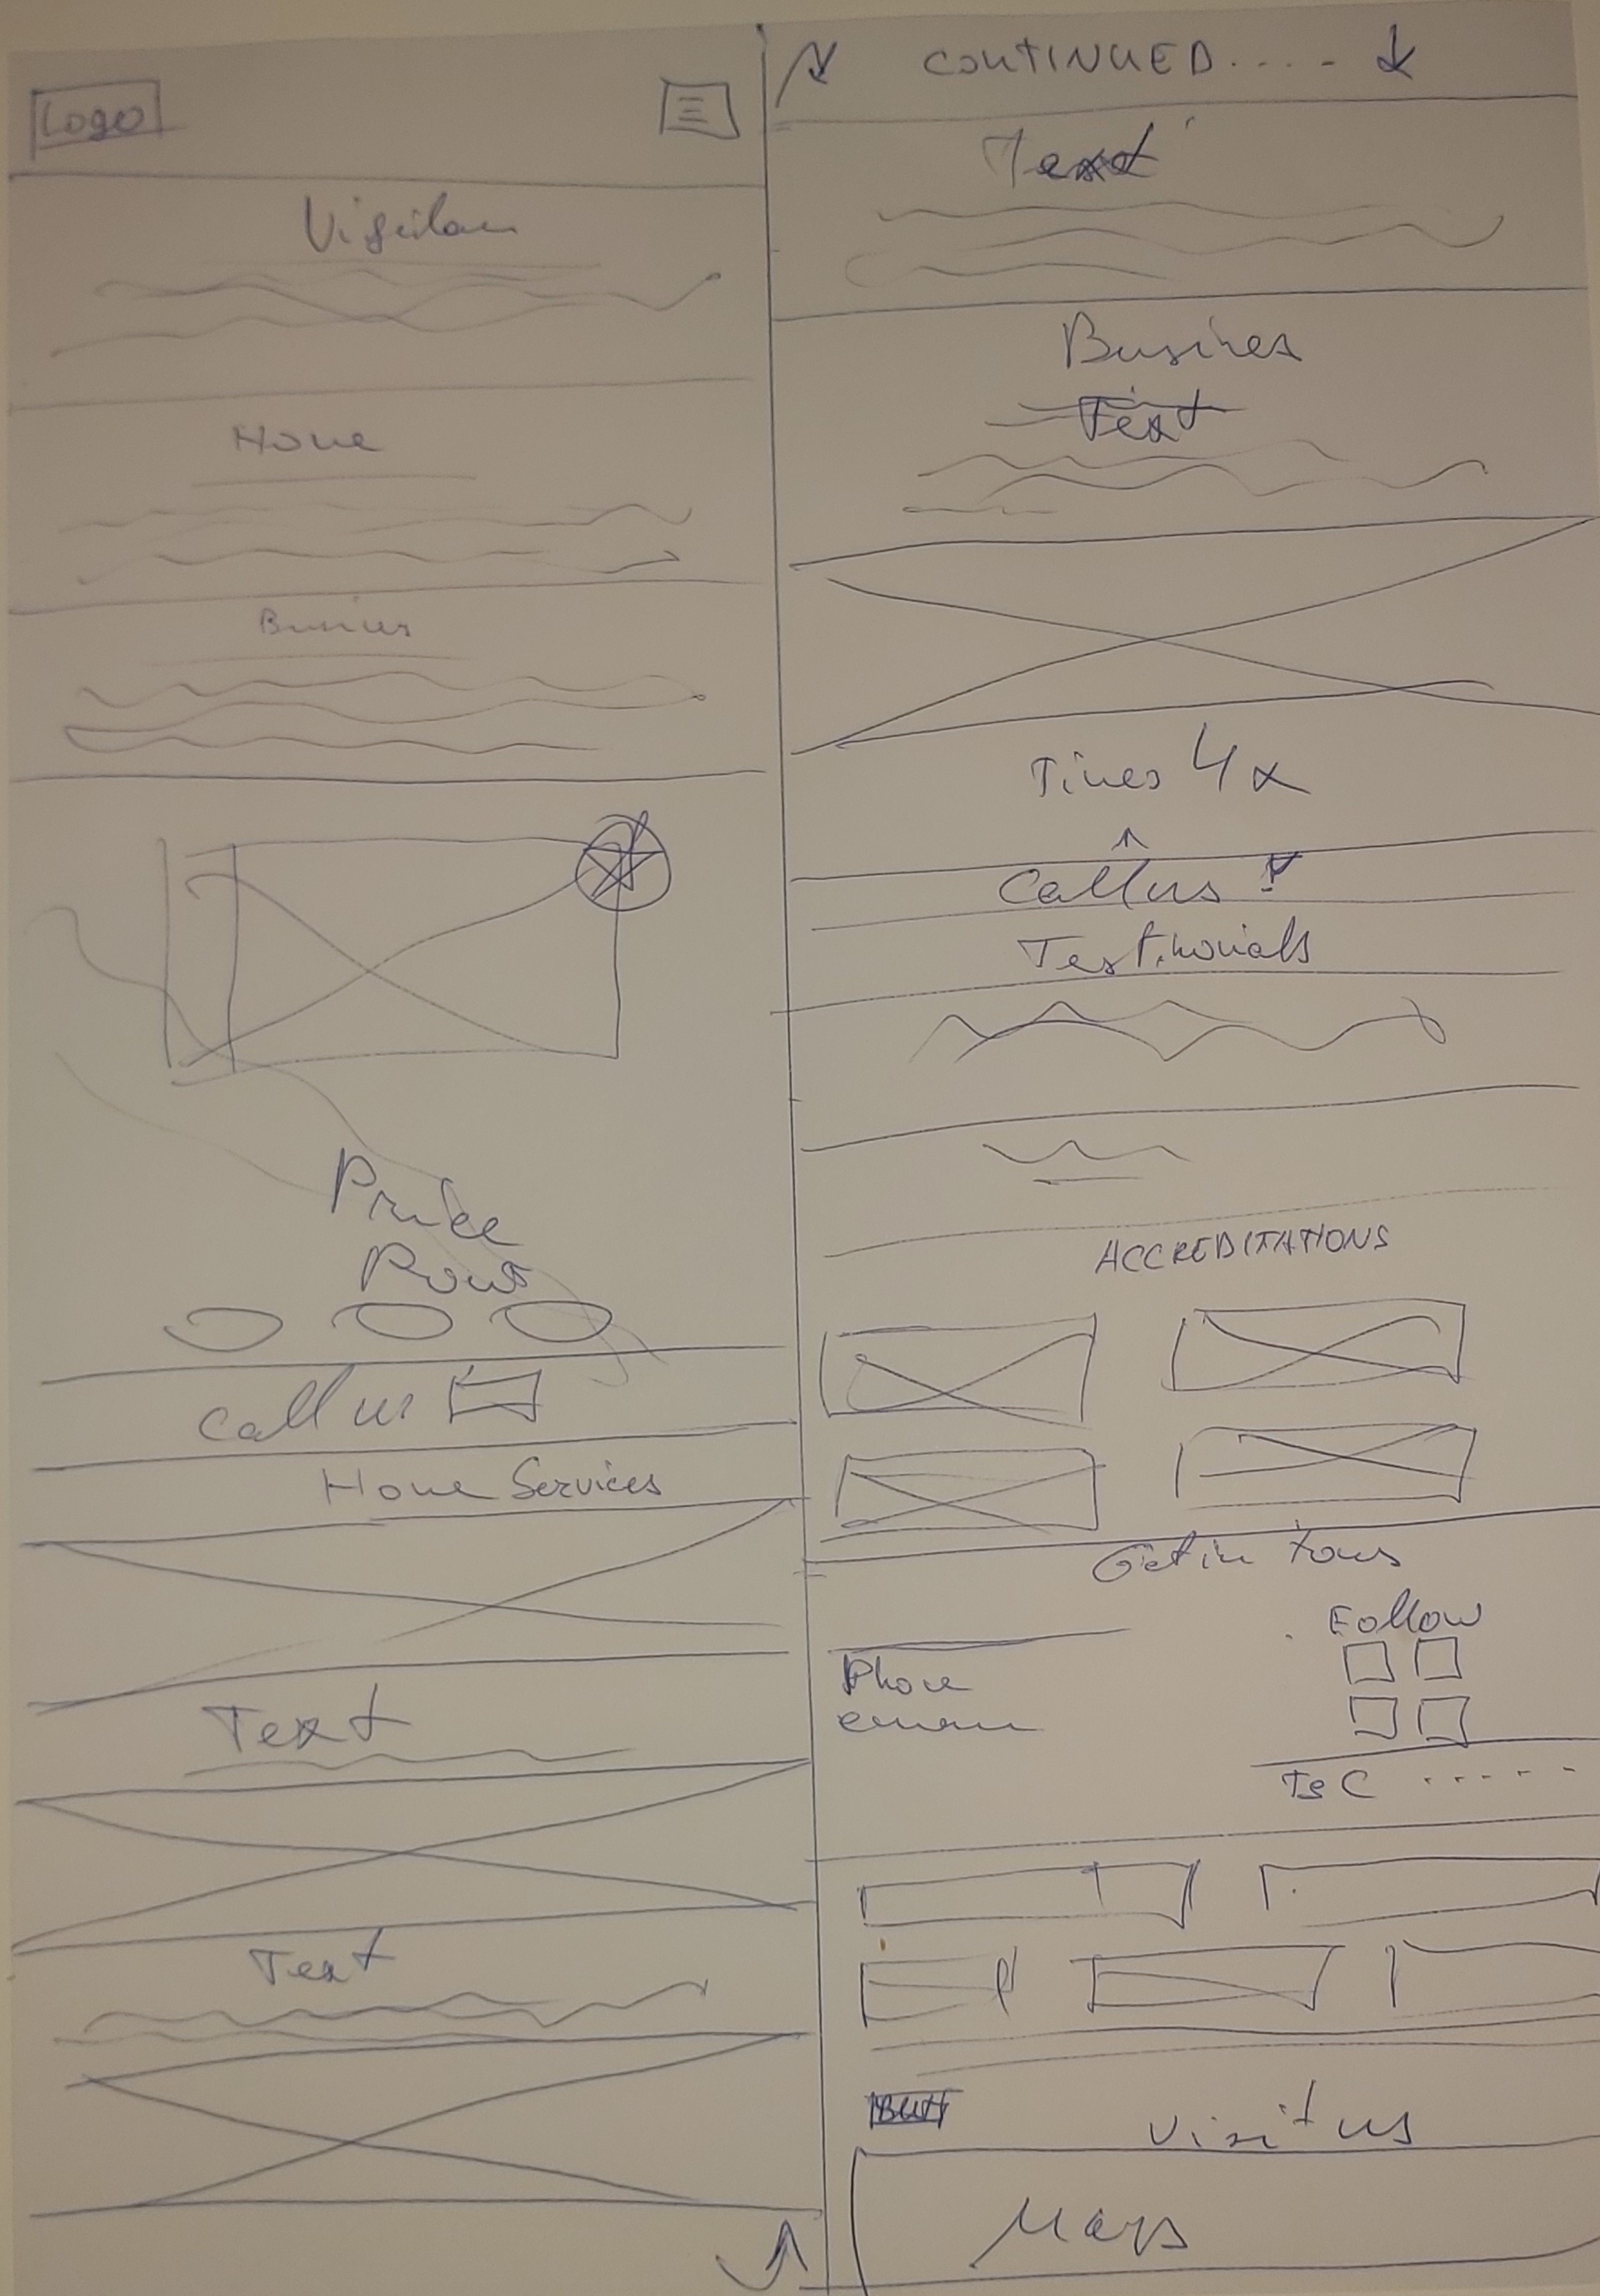 Logo
Vigilan
Home
Business
Price
Rows
Call us
Home Services
Text
Text
CONTINUED.....
Text
Business
Text
Times 4x
Call us !
Testimonials
ACCREDITATIONS
Get in
Follow
Phone
T&C .....
Visit us
Maps